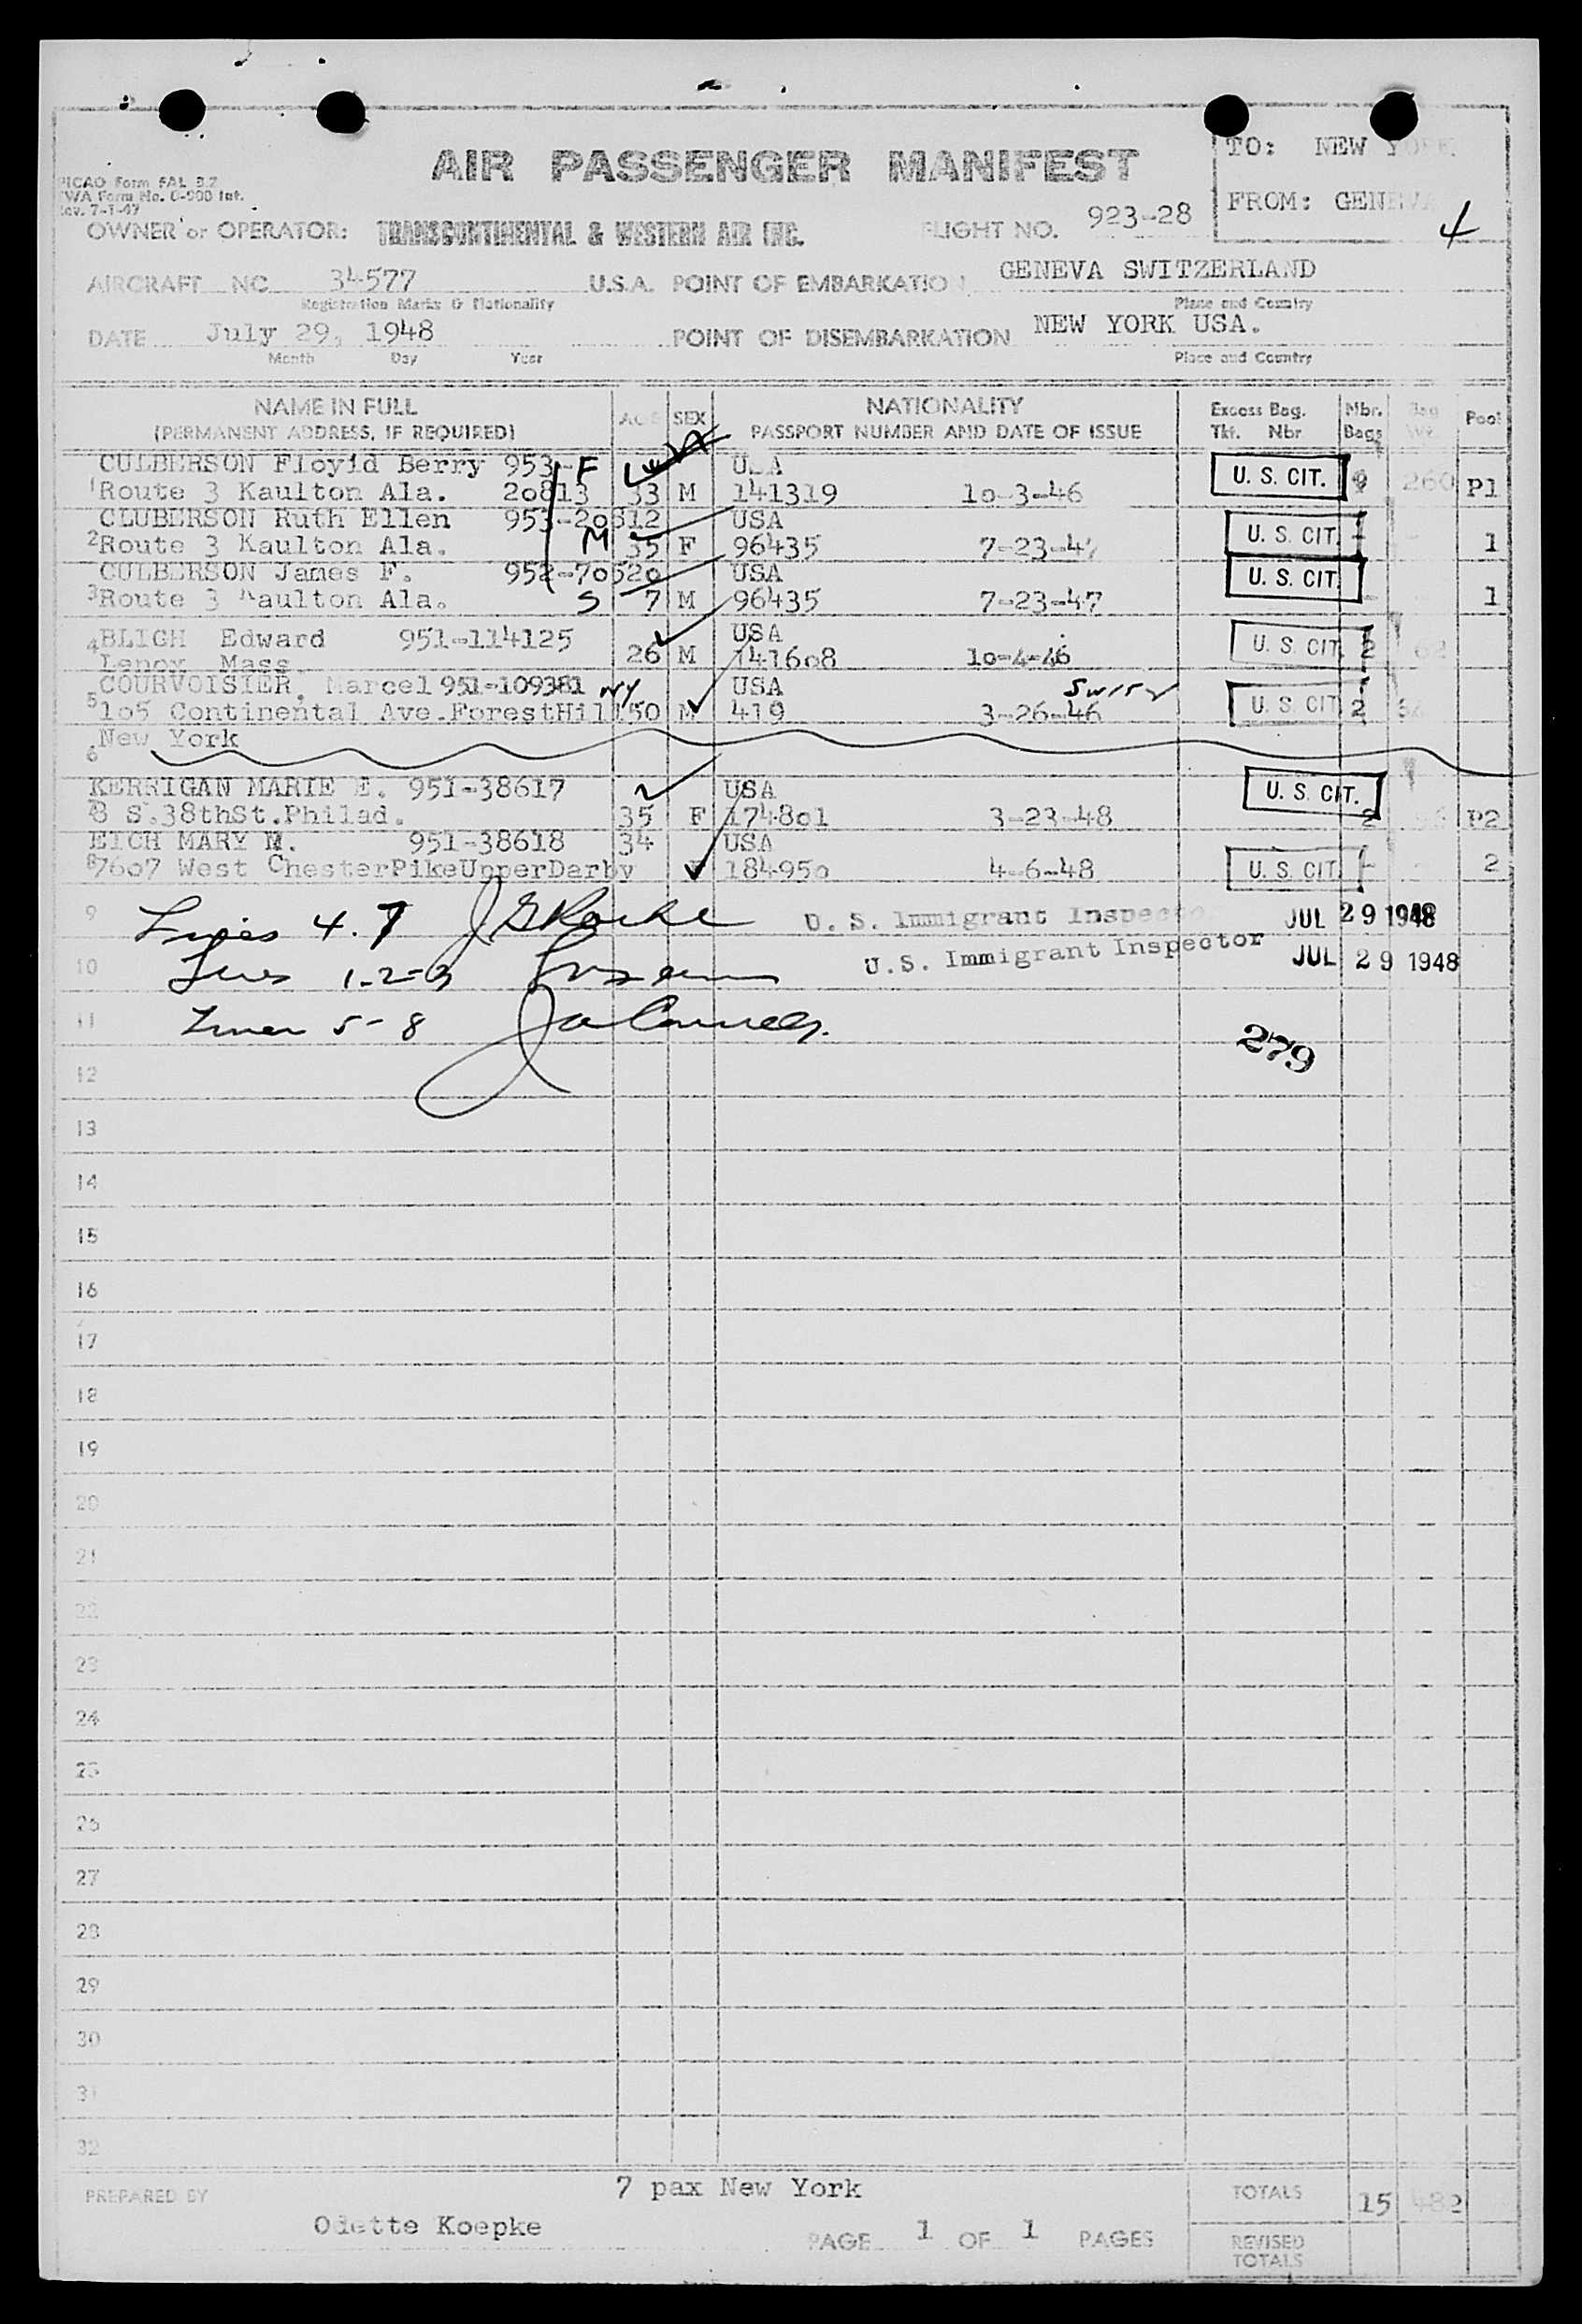 AIR PASSENGER MANIFEST
TO: NEW YORK
FROM: GENEVA
4
PICAO Form FAL 3.2
TWA Form No. O-900 Int.
Rev. 7-1-47
OWNER or OPERATOR: TRANSCONTINENTAL & WESTERN AIR INC. FLIGHT NO. 923-28
AIRCRAFT NC 34577 U.S.A. POINT OF EMBARKATION GENEVA SWITZERLAND
Registration Marks & Nationality Place and Country
DATE July 29, 1948 POINT OF DISEMBARKATION NEW YORK USA.
Month Day Year Place and Country
NAME IN FULL AGE SEX NATIONALITY Excess Bag. Nbr. Bag Pool
(PERMANENT ADDRESS, IF REQUIRED) PASSPORT NUMBER AND DATE OF ISSUE Tkt. Nbr Bags Wt.
CULBERSON Floyid Berry 953- F USA U. S. CIT.
1 Route 3 Kaulton Ala. 20813 33 M 141319 10-3-46 9 260 P1
CLUBERSON Ruth Ellen 953-20812 USA U. S. CIT.
2 Route 3 Kaulton Ala. M 35 F 96435 7-23-47 - - 1
CULBERSON James F. 952-70520 USA U. S. CIT.
3 Route 3 Kaulton Ala. S 7 M 96435 7-23-47 - 1
4 BLIGH Edward 951-114125 USA U. S. CIT.
Lenox Mass. 26 M 141608 10-4-46 2 62
COURVOISIER, Marcel 951-109381 NY USA Swiss
5 105 Continental Ave.ForestHill 50 M 419 3-26-46 U. S. CIT. 2
New York
6
KERRIGAN MARIE E. 951-38617 USA U. S. CIT.
8 S.38thSt.Philad. 35 F 174801 3-23-48 2 P2
EICH MARY M. 951-38618 34 USA
8 7607 West ChesterPikeUpperDarby F 184950 4-6-48 U. S. CIT. - - 2
9 Lines 4.7 U. S. Immigrant Inspector JUL 29 1948
10 Lines 1-2-3 U.S. Immigrant Inspector JUL 29 1948
11 Lines 5-8
279
12
13
14
15
16
17
18
19
20
21
22
23
24
25
26
27
28
29
30
31
32
7 pax New York
PREPARED BY TOTALS 15 482
Odette Koepke PAGE 1 OF 1 PAGES
REVISED
TOTALS